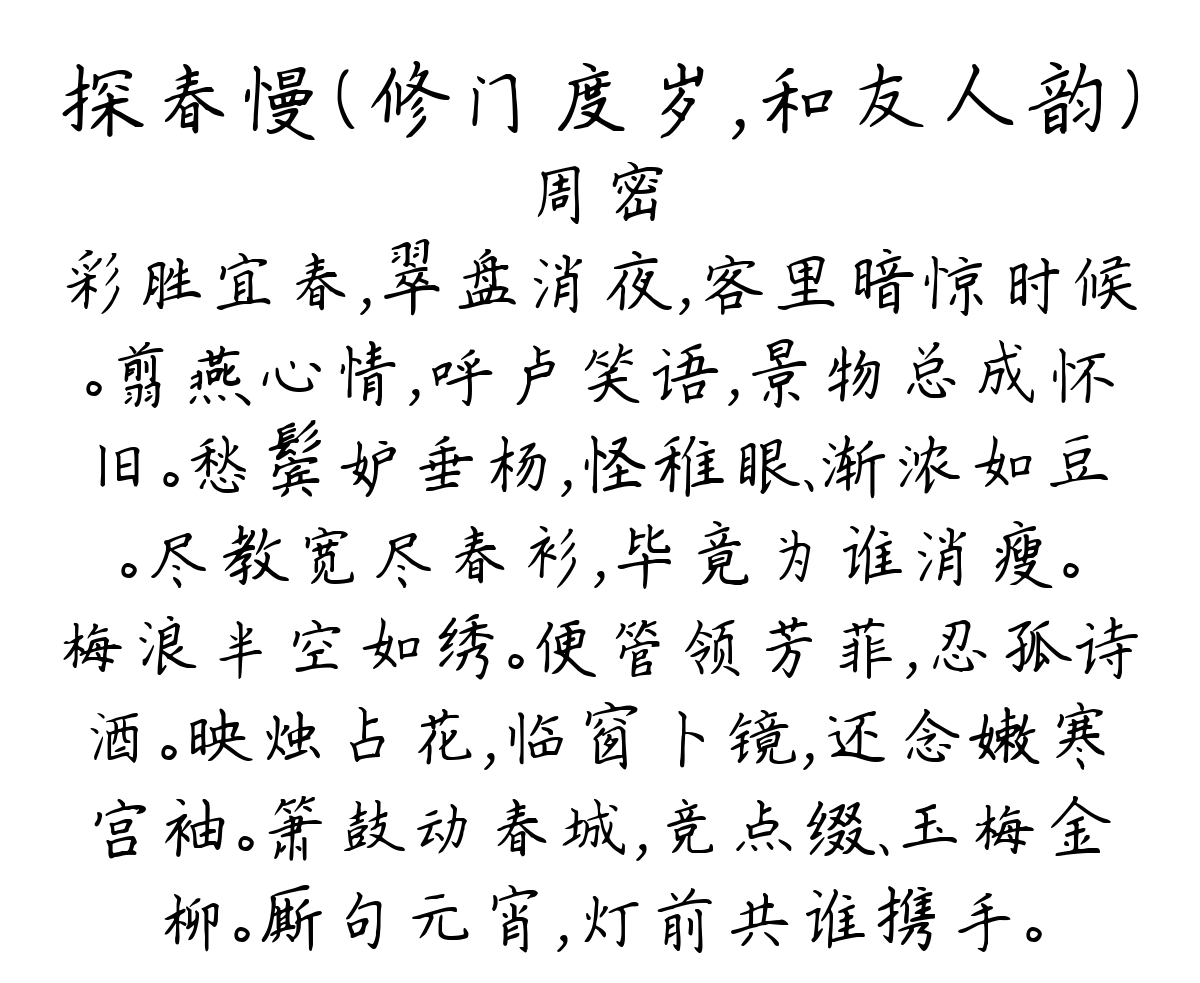 探春慢(修门度岁,和友人韵)
周密
彩胜宜春,翠盘消夜,客里暗惊时候
。翦燕心情,呼卢笑语,景物总成怀
旧。愁鬓妒垂杨,怪稚眼、渐浓如豆
。尽教宽尽春衫,毕竟为谁消瘦。
梅浪半空如绣。便管领芳菲,忍孤诗
酒。映烛占花,临窗卜镜,还念嫩寒
宫袖。箫鼓动春城,竞点缀、玉梅金
柳。厮句元宵,灯前共谁携手。